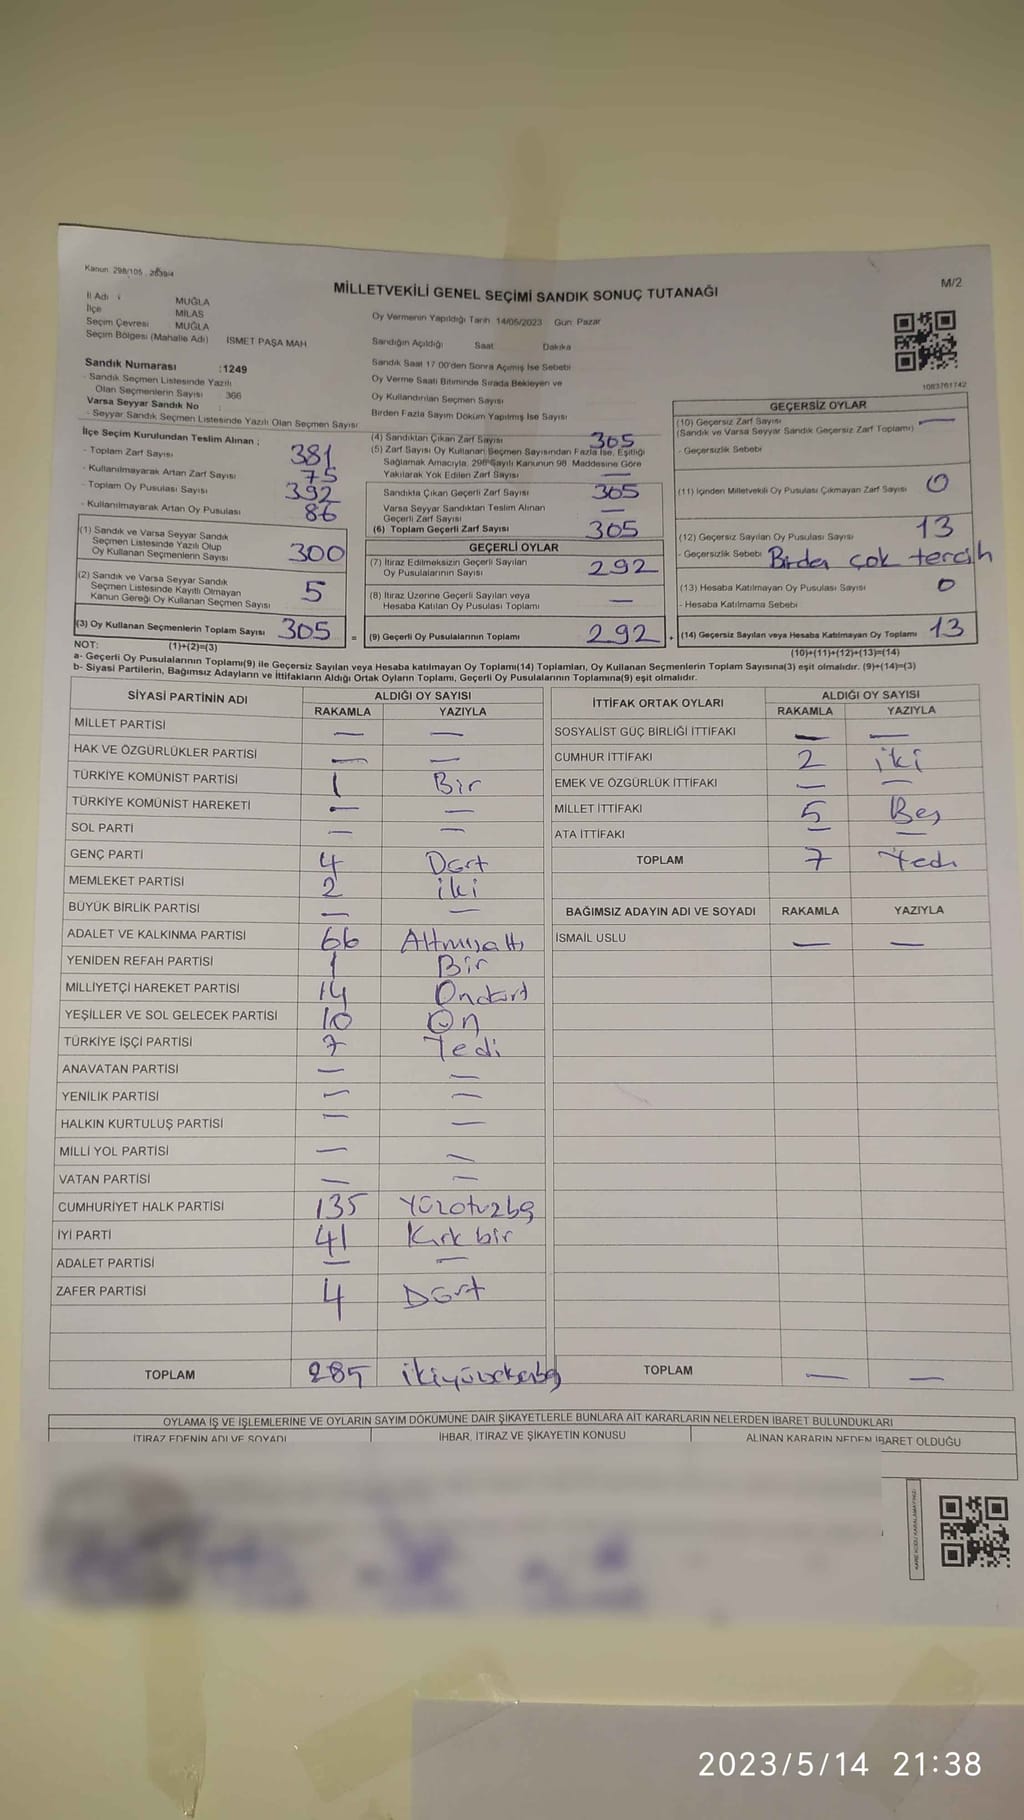 Kanun 298/105 , 2839/4
MİLLETVEKİLİ GENEL SEÇİMİ SANDIK SONUÇ TUTANAĞI
M/2
İl Adı : MUĞLA
İlçe MİLAS
Seçim Çevresi : MUĞLA
Seçim Bölgesi (Mahalle Adı) İSMET PAŞA MAH
Oy Vermenin Yapıldığı Tarih 14/05/2023 Gün: Pazar
Sandığın Açıldığı Saat Dakika
Sandık Saat 17:00'den Sonra Açılmış İse Sebebi
Oy Verme Saati Bitiminde Sırada Bekleyen ve
Oy Kullandırılan Seçmen Sayısı
Birden Fazla Sayım Döküm Yapılmış İse Sayısı
1083761742
Sandık Numarası :1249
- Sandık Seçmen Listesinde Yazılı
Olan Seçmenlerin Sayısı : 366
Varsa Seyyar Sandık No :
- Seyyar Sandık Seçmen Listesinde Yazılı Olan Seçmen Sayısı
İlçe Seçim Kurulundan Teslim Alınan ;
- Toplam Zarf Sayısı 381
- Kullanılmayarak Artan Zarf Sayısı 75
- Toplam Oy Pusulası Sayısı 392
- Kullanılmayarak Artan Oy Pusulası 86
(1) Sandık ve Varsa Seyyar Sandık
Seçmen Listesinde Yazılı Olup
Oy Kullanan Seçmenlerin Sayısı 300
(2) Sandık ve Varsa Seyyar Sandık
Seçmen Listesinde Kayıtlı Olmayan
Kanun Gereği Oy Kullanan Seçmen Sayısı 5
(3) Oy Kullanan Seçmenlerin Toplam Sayısı 305 =
(4) Sandıktan Çıkan Zarf Sayısı 305
(5) Zarf Sayısı Oy Kullanan Seçmen Sayısından Fazla İse, Eşitliği
Sağlamak Amacıyla, 298 Sayılı Kanunun 98. Maddesine Göre
Yakılarak Yok Edilen Zarf Sayısı —
Sandıkta Çıkan Geçerli Zarf Sayısı 305
Varsa Seyyar Sandıktan Teslim Alınan
Geçerli Zarf Sayısı —
(6) Toplam Geçerli Zarf Sayısı 305
GEÇERLİ OYLAR
(7) İtiraz Edilmeksizin Geçerli Sayılan
Oy Pusulalarının Sayısı 292
(8) İtiraz Üzerine Geçerli Sayılan veya
Hesaba Katılan Oy Pusulası Toplamı —
(9) Geçerli Oy Pusulalarının Toplamı 292 +
GEÇERSİZ OYLAR
(10) Geçersiz Zarf Sayısı —
(Sandık ve Varsa Seyyar Sandık Geçersiz Zarf Toplamı)
- Geçersizlik Sebebi
(11) İçinden Milletvekili Oy Pusulası Çıkmayan Zarf Sayısı 0
(12) Geçersiz Sayılan Oy Pusulası Sayısı 13
- Geçersizlik Sebebi Birden çok tercih
(13) Hesaba Katılmayan Oy Pusulası Sayısı 0
- Hesaba Katılmama Sebebi
(14) Geçersiz Sayılan veya Hesaba Katılmayan Oy Toplamı 13
NOT: (1)+(2)=(3) (10)+(11)+(12)+(13)=(14)
a- Geçerli Oy Pusulalarının Toplamı(9) ile Geçersiz Sayılan veya Hesaba katılmayan Oy Toplamı(14) Toplamları, Oy Kullanan Seçmenlerin Toplam Sayısına(3) eşit olmalıdır. (9)+(14)=(3)
b- Siyasi Partilerin, Bağımsız Adayların ve İttifakların Aldığı Ortak Oyların Toplamı, Geçerli Oy Pusulalarının Toplamına(9) eşit olmalıdır.
SİYASİ PARTİNİN ADI ALDIĞI OY SAYISI
RAKAMLA YAZIYLA
MİLLET PARTİSİ — —
HAK VE ÖZGÜRLÜKLER PARTİSİ — —
TÜRKİYE KOMÜNİST PARTİSİ 1 Bir
TÜRKİYE KOMÜNİST HAREKETİ — —
SOL PARTİ — —
GENÇ PARTİ 4 Dört
MEMLEKET PARTİSİ 2 iki
BÜYÜK BİRLİK PARTİSİ — —
ADALET VE KALKINMA PARTİSİ 66 Altmışaltı
YENİDEN REFAH PARTİSİ 1 Bir
MİLLİYETÇİ HAREKET PARTİSİ 14 Ondört
YEŞİLLER VE SOL GELECEK PARTİSİ 10 On
TÜRKİYE İŞÇİ PARTİSİ 7 Yedi
ANAVATAN PARTİSİ — —
YENİLİK PARTİSİ — —
HALKIN KURTULUŞ PARTİSİ — —
MİLLİ YOL PARTİSİ — —
VATAN PARTİSİ — —
CUMHURİYET HALK PARTİSİ 135 Yüzotuzbş
İYİ PARTİ 41 Kırk bir
ADALET PARTİSİ — —
ZAFER PARTİSİ 4 Dört
TOPLAM 285 ikiyüzseksenbeş
İTTİFAK ORTAK OYLARI ALDIĞI OY SAYISI
RAKAMLA YAZIYLA
SOSYALİST GÜÇ BİRLİĞİ İTTİFAKI — —
CUMHUR İTTİFAKI 2 iki
EMEK VE ÖZGÜRLÜK İTTİFAKI — —
MİLLET İTTİFAKI 5 Beş
ATA İTTİFAKI — —
TOPLAM 7 Yedi
BAĞIMSIZ ADAYIN ADI VE SOYADI RAKAMLA YAZIYLA
İSMAİL USLU — —
TOPLAM — —
OYLAMA İŞ VE İŞLEMLERİNE VE OYLARIN SAYIM DÖKÜMÜNE DAİR ŞİKAYETLERLE BUNLARA AİT KARARLARIN NELERDEN İBARET BULUNDUKLARI
İTİRAZ EDENİN ADI VE SOYADI İHBAR, İTİRAZ VE ŞİKAYETİN KONUSU ALINAN KARARIN NEDEN İBARET OLDUĞU
2023/5/14 21:38